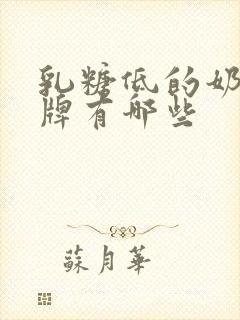 乳糖低的奶
牌有哪些
蘇月華